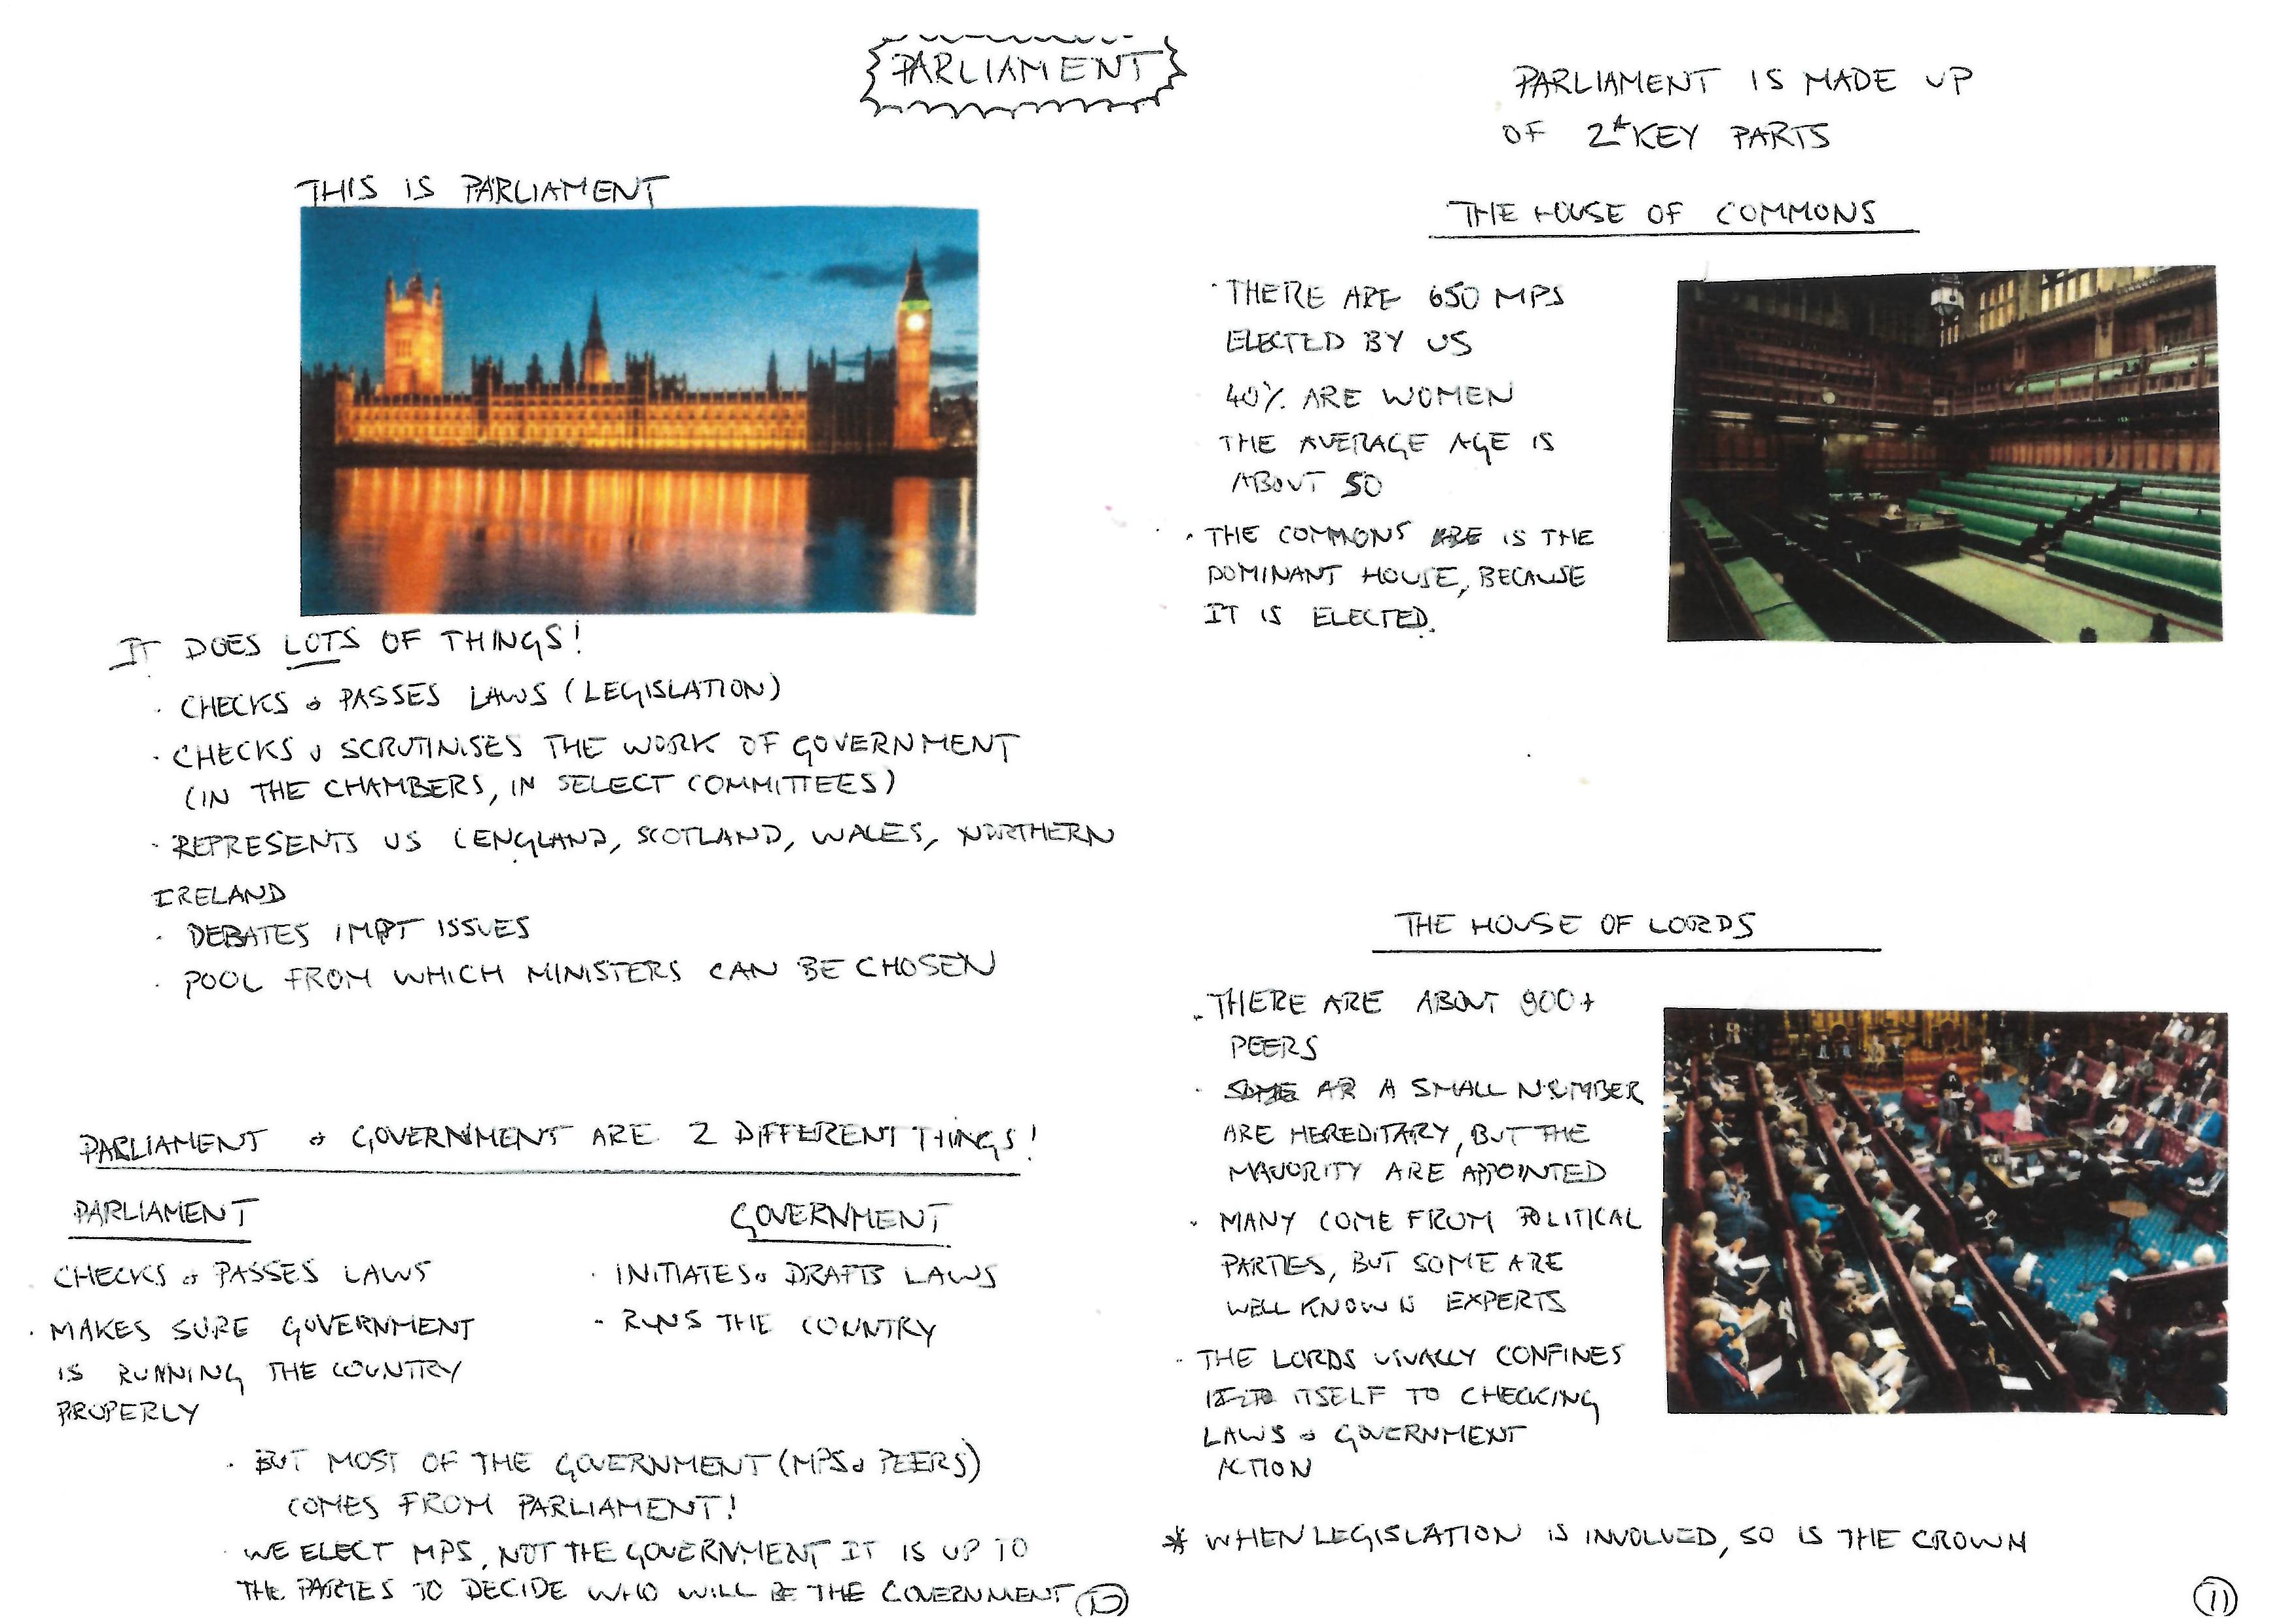 PARLIAMENT
THIS IS PARLIAMENT
IT DOES LOTS OF THINGS!
· CHECKS & PASSES LAWS (LEGISLATION)
· CHECKS & SCRUTINISES THE WORK OF GOVERNMENT
(IN THE CHAMBERS, IN SELECT COMMITTEES)
· REPRESENTS US (ENGLAND, SCOTLAND, WALES, NORTHERN
IRELAND
· DEBATES IMPT ISSUES
· POOL FROM WHICH MINISTERS CAN BE CHOSEN
PARLIAMENT & GOVERNMENT ARE 2 DIFFERENT THINGS!
PARLIAMENT
CHECKS & PASSES LAWS
· MAKES SURE GOVERNMENT
IS RUNNING THE COUNTRY
PROPERLY
GOVERNMENT
· INITIATES & DRAFTS LAWS
- RUNS THE COUNTRY
· BUT MOST OF THE GOVERNMENT (MPS & PEERS)
COMES FROM PARLIAMENT!
· WE ELECT MPS, NOT THE GOVERNMENT IT IS UP TO
THE PARTIES TO DECIDE WHO WILL BE THE GOVERNMENT
10
PARLIAMENT IS MADE UP
OF 2* KEY PARTS
THE HOUSE OF COMMONS
· THERE ARE 650 MPS
ELECTED BY US
40% ARE WOMEN
THE AVERAGE AGE IS
ABOUT 50
· THE COMMONS ARE IS THE
DOMINANT HOUSE, BECAUSE
IT IS ELECTED.
THE HOUSE OF LORDS
· THERE ARE ABOUT 900+
PEERS
· SOME AR A SMALL NUMBER
ARE HEREDITARY, BUT THE
MAJORITY ARE APPOINTED
· MANY COME FROM POLITICAL
PARTIES, BUT SOME ARE
WELL KNOWN EXPERTS
· THE LORDS USUALLY CONFINES
ITSELF TO CHECKING
LAWS & GOVERNMENT
ACTION
* WHEN LEGISLATION IS INVOLVED, SO IS THE CROWN
11